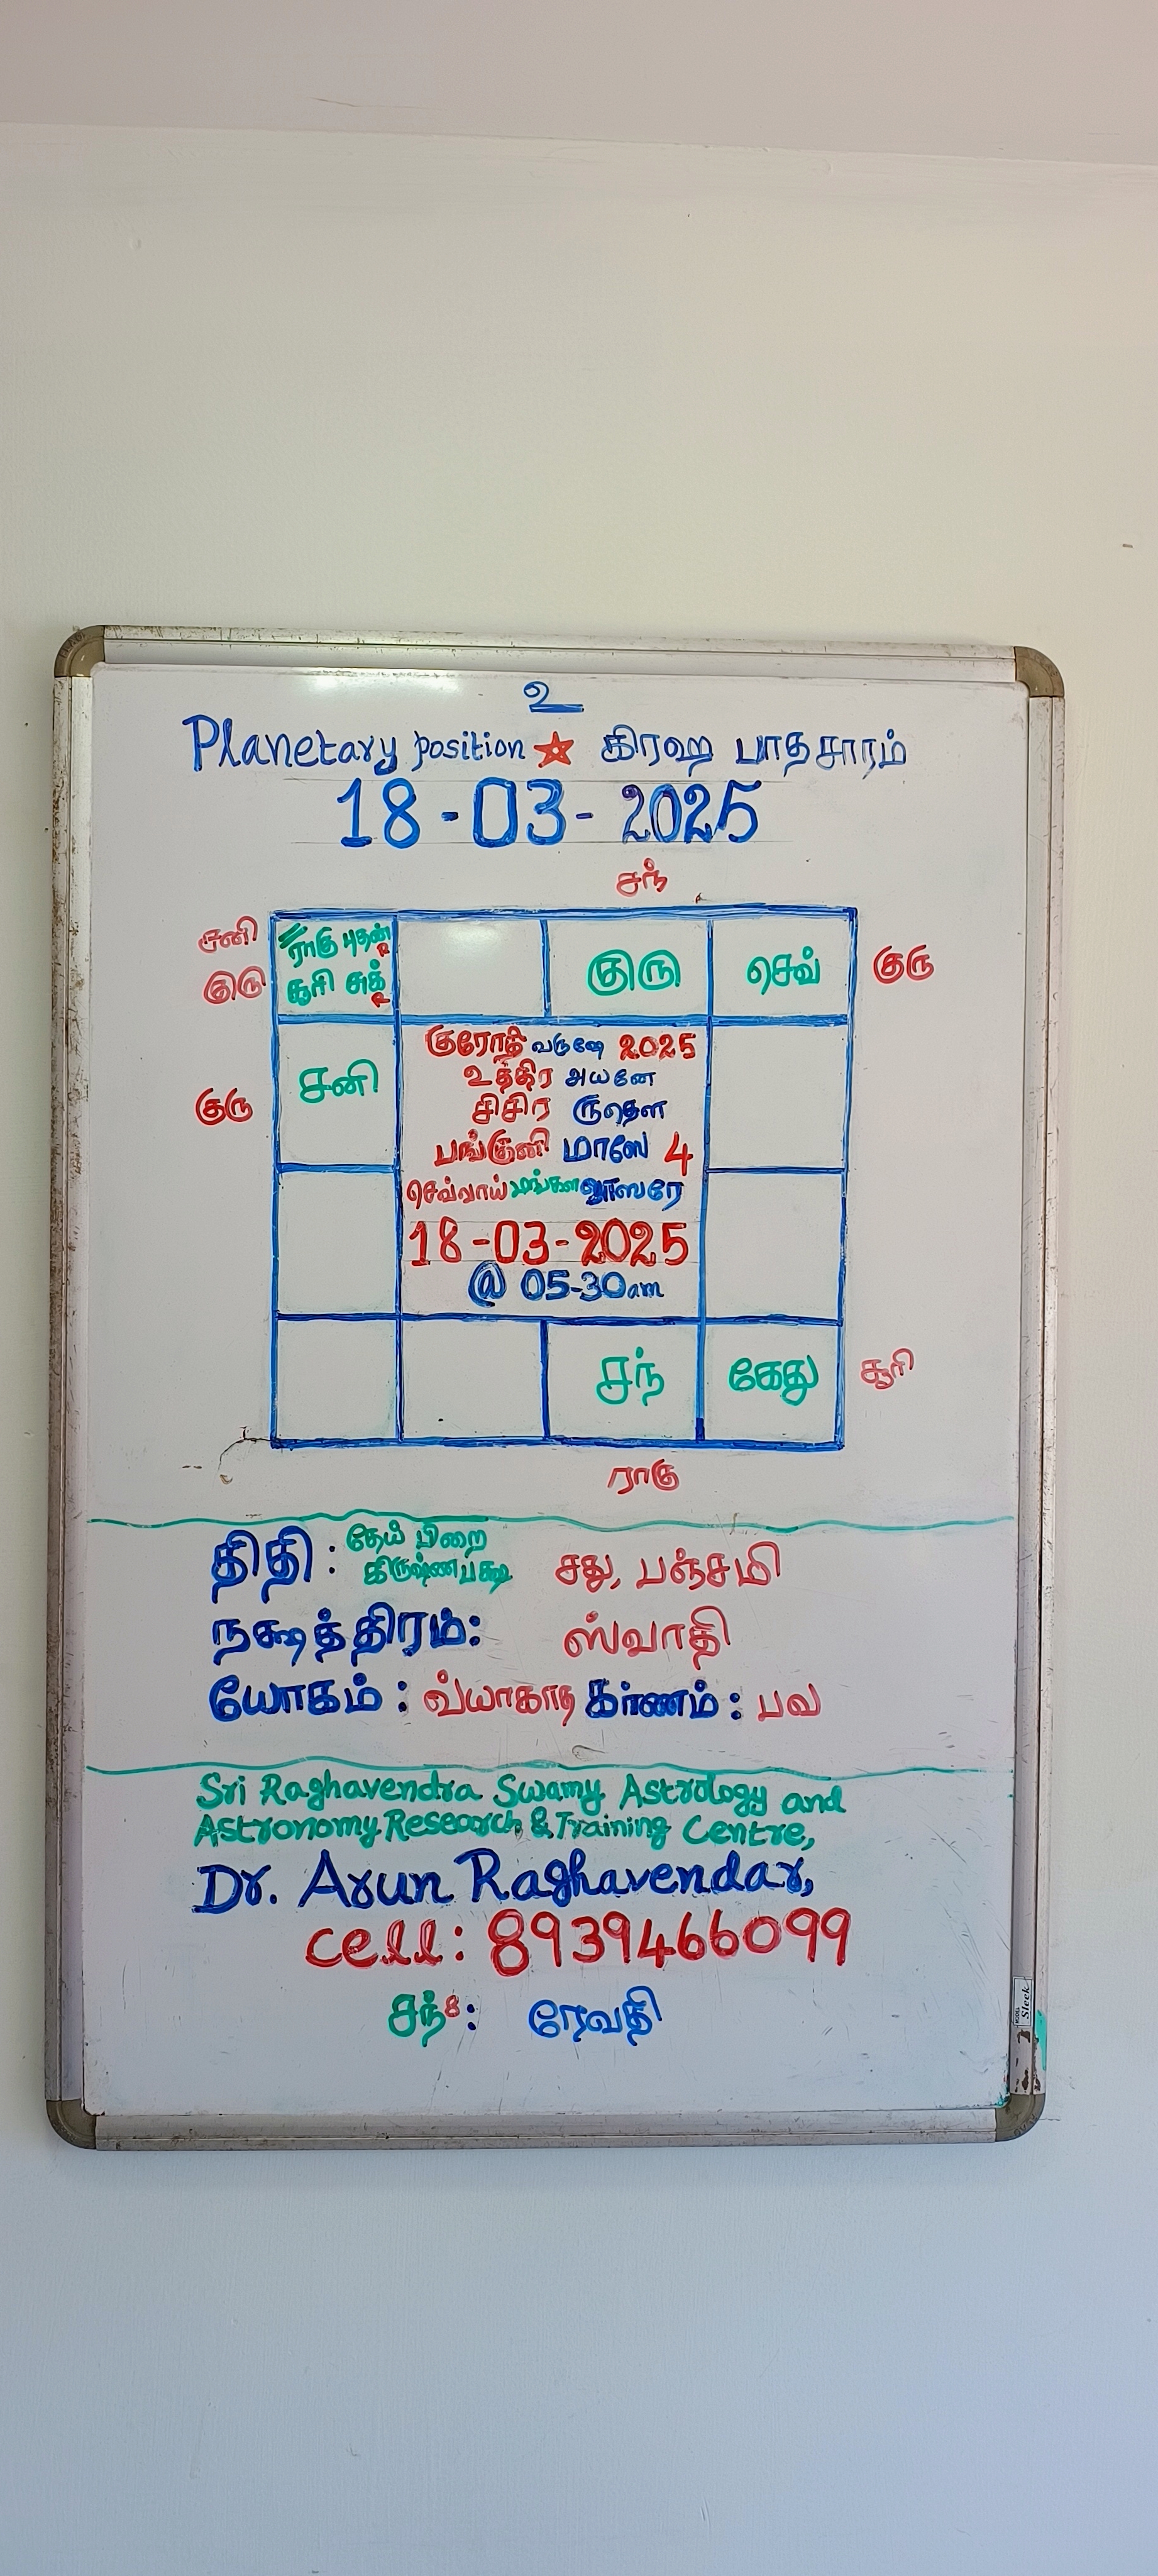 உ
Planetary position ★ கிரஹ பாதசாரம்
18-03-2025
சந்
சனி
குரு
ராகு புதன் R
சூரி சுக் R
குரு
செவ்
குரு
குரு
சனி
குரோதி வருஷே 2025
உத்திர அயனே
சிசிர ருதௌ
பங்குனி மாஸே 4
செவ்வாய் மங்கள வாஸரே
18-03-2025
@ 05-30am
சந்
கேது
சூரி
ராகு
திதி : தேய் பிறை
கிருஷ்ணபக்ஷ சது, பஞ்சமி
நக்ஷத்திரம்: ஸ்வாதி
யோகம் : வ்யாகாத கர்ணம் : பவ
Sri Raghavendra Swamy Astrology and
Astronomy Research & Training Centre,
Dr. Arun Raghavendar,
cell: 8939466099
சந் 8 : ரேவதி
Sleek